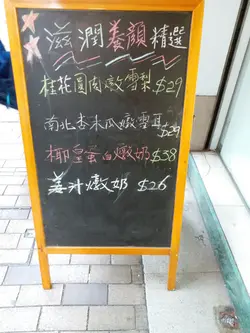 滋潤養顏精選
桂花圓肉燉雪梨$29
南北杏木瓜燉雪耳$29
椰皇蛋白燉奶$38
姜汁燉奶 $26